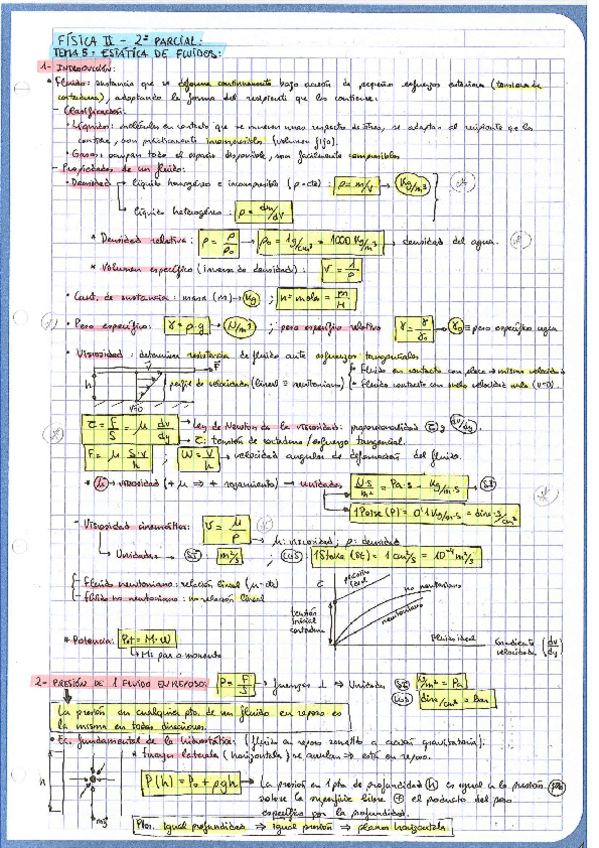 FÍSICA II - 2º PARCIAL:
TEMA 5: ESTÁTICA DE FLUIDOS:
1- INTRODUCCIÓN:
• Fluido: sustancia que se deforma continuamente bajo acción de pequeños esfuerzos exteriores (tensiones de
cortadura), adoptando la forma del recipiente que los contiene.
- Clasificación:
• Líquidos: moléculas en contacto que se mueven unas respecto de otras, se adaptan al recipiente que los
contiene, son prácticamente incompresibles (volumen fijo).
• Gases: ocupan todo el espacio disponible, son fácilmente compresibles
- Propiedades de un fluido:
• Densidad líquido homogéneo e incompresible (ρ=cte): ρ = m/V → Kg/m³
líquido heterogéneo: ρ = dm/dV
* Densidad relativa: ρ = ρ/ρ₀ → ρ₀ = 1g/cm³ = 1000 Kg/m³ → densidad del agua.
* Volumen específico (inversa de densidad): V = 1/ρ
• Cant. de sustancia: masa (M) → Kg ; n = moles = m/M
• Peso específico: γ = ρ·g → N/m³ ; peso específico relativo γ = γ/γ₀ → γ₀ ≡ peso específico agua
• Viscosidad: determina resistencia de fluido ante esfuerzos tangenciales
V F • Fluido en contacto con placa → misma velocidad
h perfil de velocidades (lineal ≡ newtoniano) • Fluido contacto con suelo velocidad nula (V=0).
V=0
τ = F/S = μ dv/dy → Ley de Newton de la viscosidad: proporcionalidad τ y dv/dy
→ τ: tensión de cortadura / esfuerzo tangencial.
F = μ S·V/h ; W = V/h → velocidad angular de deformación del fluido.
* μ → viscosidad (+ μ ⇒ + rozamiento) → Unidades N·s/m² = Pa·s - Kg/m·s → SI
1 Poise (P) = 0'1 Kg/m·s = dina·s/cm²
- Viscosidad cinemática: V = μ/ρ
→ μ: viscosidad; ρ: densidad
Unidades → SI: m²/s ; CGS: 1 Stoke (St) = 1 cm²/s = 10⁻⁴ m²/s
- Fluido newtoniano: relación lineal (μ=cte)
- Fluido no newtoniano: no relación lineal
τ
no newtoniano
newtoniano
tensión inicial cortadura
Fluido ideal Gradiente velocidade (dv/dy)
• Potencia: Pot = M·W
M: par o momento
2- PRESIÓN DE 1 FLUIDO EN REPOSO: P = F/S → fuerzas ⊥ ⇒ Unidades SI N/m² = Pa
CGS dina/cm² = bar
La presión en cualquier pto. de un fluido en reposo es
la misma en todas direcciones.
• Ec. fundamental de la hidrostática: (fluido en reposo sometido a acción gravitatoria):
* fuerzas laterales (horizontales) se anulan ⇒ está en reposo.
h P(h) = P₀ + ρgh → La presión en 1 pto de profundidad h es igual a la presión
sobre la superficie libre + el producto del peso
específico por la profundidad.
mg Ptos. igual profundidad ⇒ igual presión ⇒ planos horizontales.